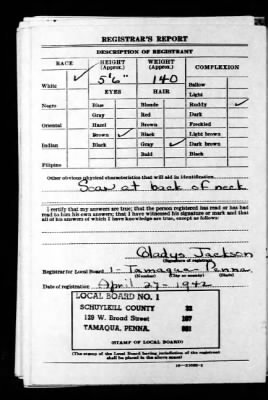 REGISTRAR'S REPORT
DESCRIPTION OF REGISTRANT
RACE HEIGHT (Approx.) WEIGHT (Approx.) COMPLEXION
5'6" 140
White ✓ EYES HAIR Sallow
Light
Negro Blue Blonde Ruddy ✓
Gray Red Dark
Oriental Hazel Brown Freckled
Brown ✓ Black Light brown
Indian Black Gray ✓ Dark brown
Bald Black
Filipino
Other obvious physical characteristics that will aid in identification
Scar at back of neck
I certify that my answers are true; that the person registered has read or has had
read to him his own answers; that I have witnessed his signature or mark and that
all of his answers of which I have knowledge are true, except as follows:
Gladys Jackson
(Signature of registrar)
Registrar for Local Board 1 - Tamaqua - Penna
(Number) (City or county) (State)
Date of registration April 27 - 1942
LOCAL BOARD NO. 1
SCHUYLKILL COUNTY
129 W. Broad Street
TAMAQUA, PENNA.
(STAMP OF LOCAL BOARD)
(The stamp of the Local Board having jurisdiction of the registrant
shall be placed in the above space)